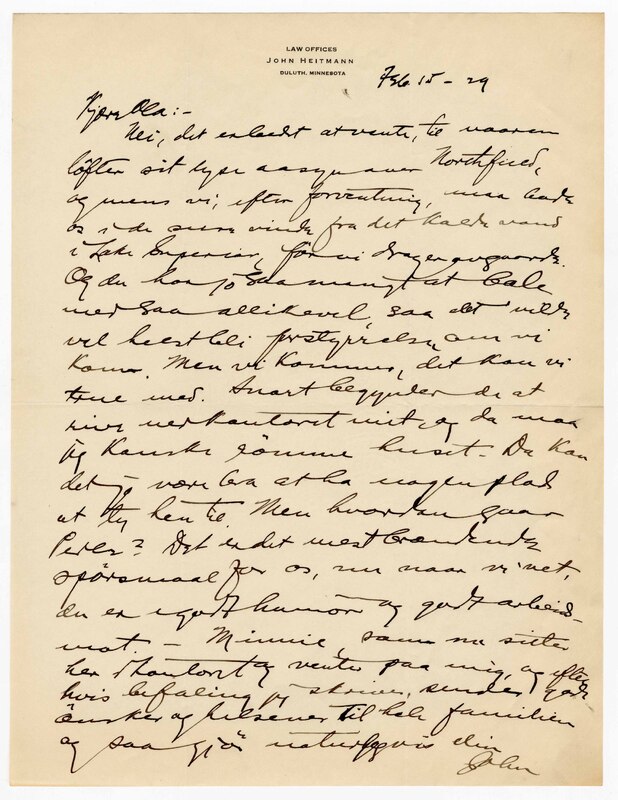 LAW OFFICES
JOHN HEITMANN
DULUTH, MINNESOTA
Feb 15 - 29
Kjære Ola:-
Nei, det er bedst at vente, til vaaren
løfter sit lyse aasyn over Northfield,
og mens vi, efter forventning, maa bade
os i de sure vinde fra det kalde vand
i Lake Superior, før vi drager avgaarde.
Og du har jo saa mangt at bale
med saa allikevel, saa det vilde
vel heest bli forstyrrelse, om vi
kom. Men vi kommer, det kan vi
true med. Snart begynder de at
rive ned kontoret mit, og da maa
jeg kanske rømme huset. Da kan
det jo være bra at ha nogen plads
at ty hen til. Men hvordan gaar
Perlen? Det er det mest brændende
spørsmaal for os, nu naar vi vet,
du er i godt humør og godt arbeids-
mot. - Minnie, som nu sitter
her i kontoret og venter paa mig, og efter
hvis befaling jeg skriver, sender gode
ønsker og hilsener til hele familien
og saa gjør naturligvis din
John